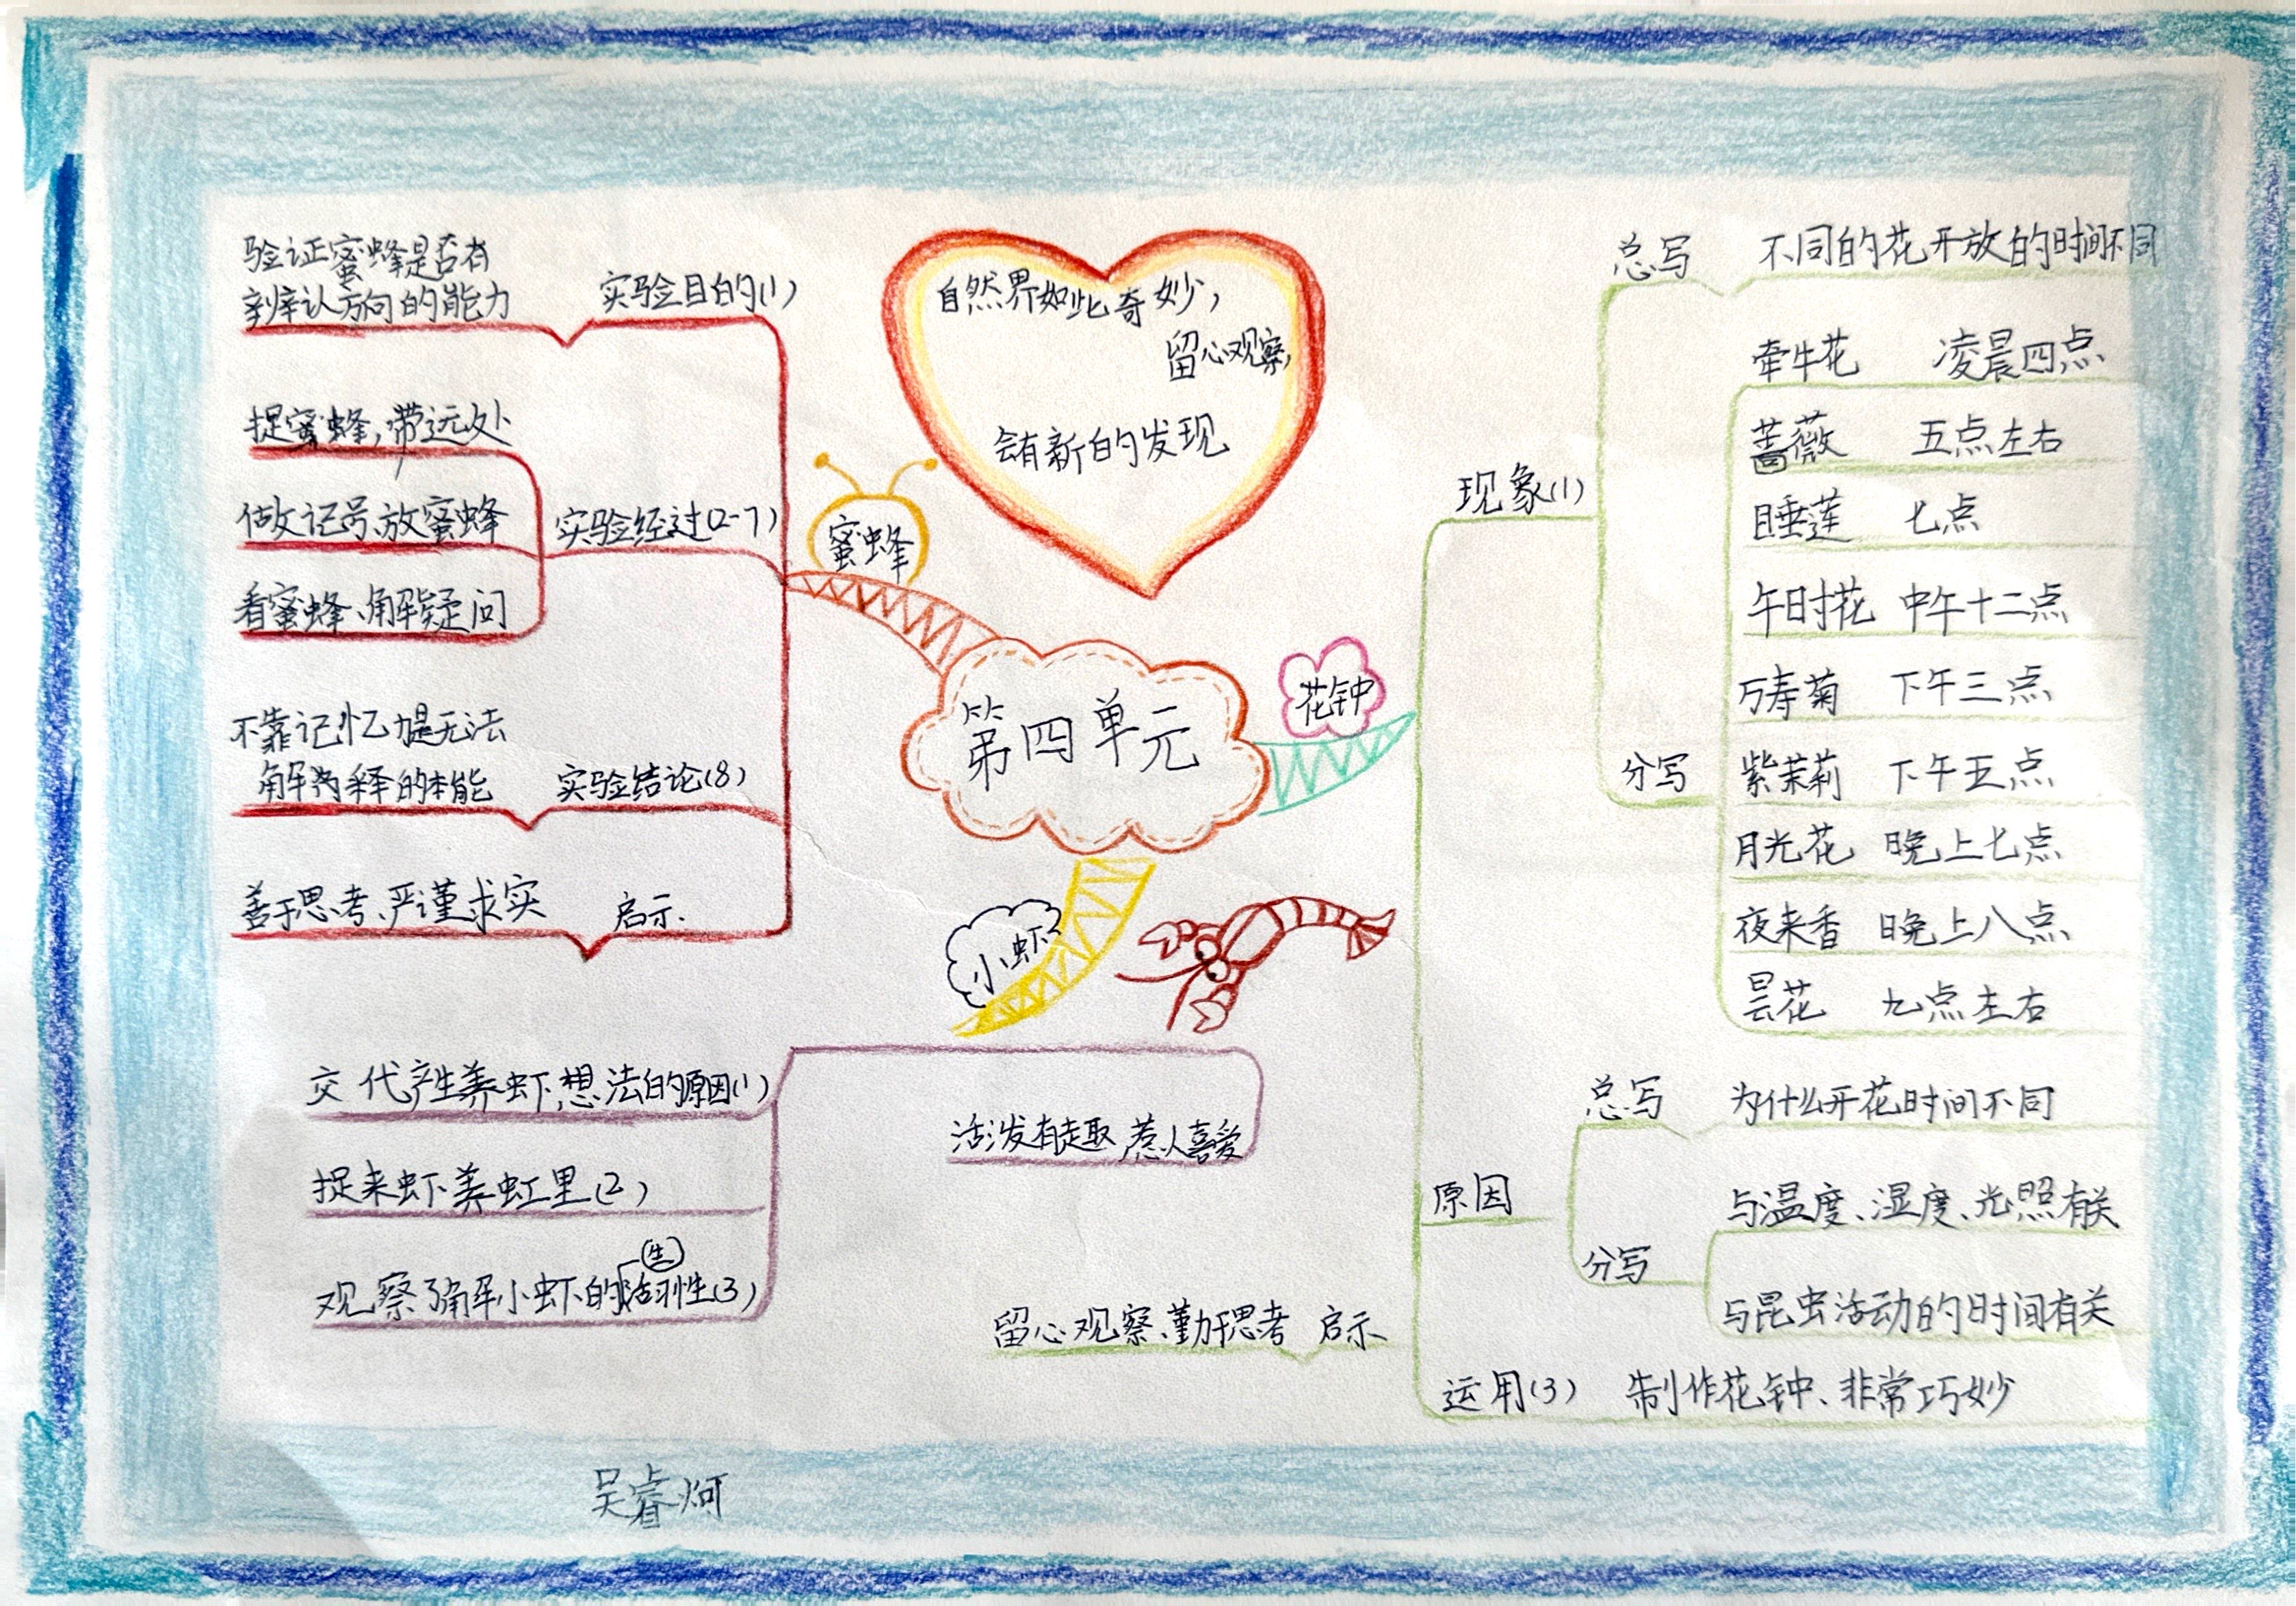 自然界如此奇妙，
留心观察，
会有新的发现
第四单元
蜜蜂
实验目的(1)
验证蜜蜂是否有
辨认方向的能力
实验经过(2-7)
捉蜜蜂，带远处
做记号、放蜜蜂
看蜜蜂、解疑问
实验结论(8)
不靠记忆力是无法
解释的本能
启示.
善于思考、严谨求实
花钟
现象(1)
总写 不同的花开放的时间不同
分写
牵牛花 凌晨四点
蔷薇 五点左右
睡莲 七点
午时花 中午十二点
万寿菊 下午三点
紫茉莉 下午五点
月光花 晚上七点
夜来香 晚上八点
昙花 九点左右
原因
总写 为什么开花时间不同
分写
与温度、湿度、光照有关
与昆虫活动的时间有关
运用(3) 制作花钟、非常巧妙
留心观察、勤于思考 启示
小虾
交代产生养虾想法的原因(1)
捉来虾养虹里(2)
观察了解小虾的生活习性(3)
活泼有趣 惹人喜爱